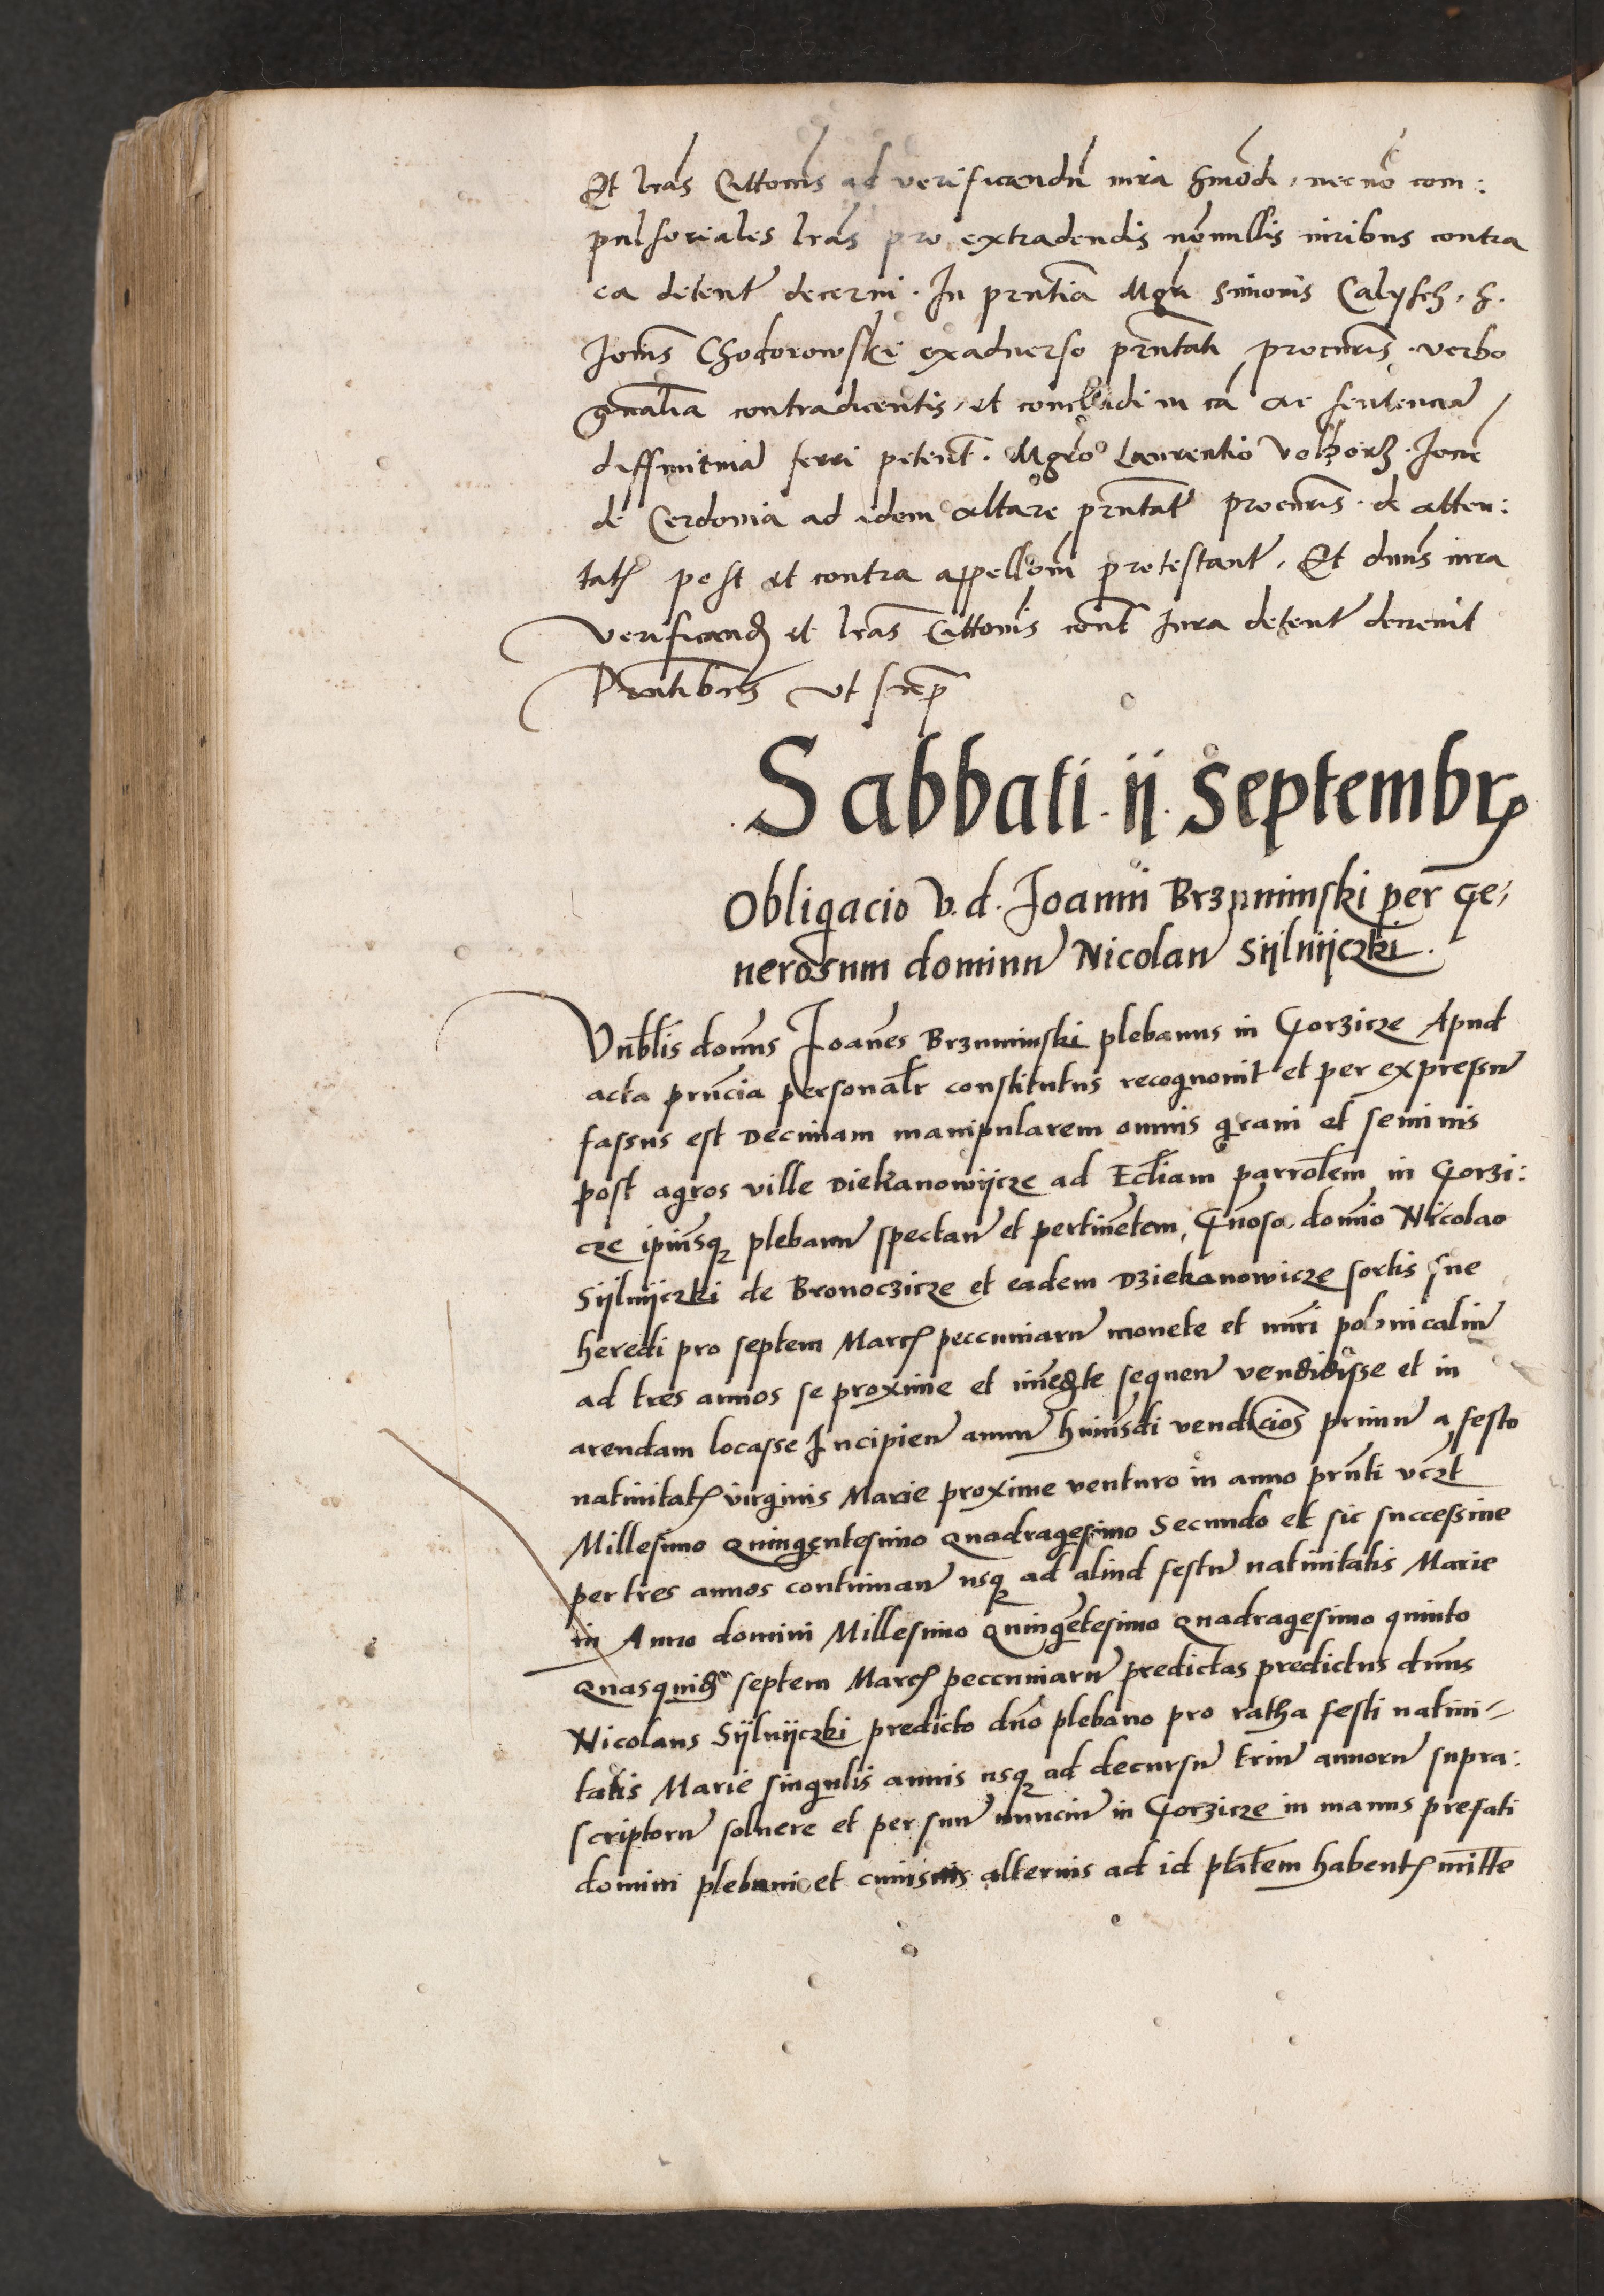 Et lras Cittonis ad verificandu iura hmodi, necno com:
pulsoriales lras pro extradendis nonnullis iuribus contra
ea detent decerni. In prntia Mgri Simonis Calysch, h.
Joannis Chodorowski exaduerso prntati procuris. verbo
gnalia contradicentis, et concludi in ca ac sententia
diffinitiua ferri petent. Mgro Laurentio
de Cerdonia ad idem altare prntat procuris. de atten:
tatis post et contra appellom protestant. Et dnus iura
verificand et lras Cittonis cont Jura detent decreuit
Prntibus vt supra
Sabbati. ij. Septembris
Obligacio V. d. Joanni Brzuminski per Ge,
nerosum dominu Nicolau Sijlnijczki.
Vnblis domns Joanes Brzuminski plebanus in Gorzicze Apud
acta prncia personalr constitutus recognouit et per expressu
fassus est Decimam manipularem omnis grani et seminis
post agros ville Diekanowijcze ad Ecliam parrolem in Gorzi:
cze ipiusq plebanu spectan et pertinetem, Gnoso domio Nicolao
Sijlnijczki de Bronoczicze et eadem Dziekanowicze sortis sue
heredi pro septem Marcis peccuniaru monete et nuri polonicaliu
ad tres annos se proxime et imediate sequen vendidisse et in
arendam locasse Incipien annu huiusdi vendicios primu a festo
natiuitatis virginis Marie proxime venturo in anno prnti vczt
Millesimo Quingentesimo Quadragesimo Secundo et sic successiue
per tres annos continuan usq ad aliud festu natiuitatis Marie
in Anno domini Millesimo Quingetesimo Quadragesimo quinto
Quasquid septem Marcis peccuniaru predictas predictus dnus
Nicolaus Sijlnijczki predicto dno plebano pro ratha festi natiui-
tatis Marie singulis annis usq ad decursu triu annoru supra:
scriptoru soluere et per suu nunciu in Gorzicze in manus prefati
domini plebani et cuiusuis alterius ad id ptatem habentis mitte